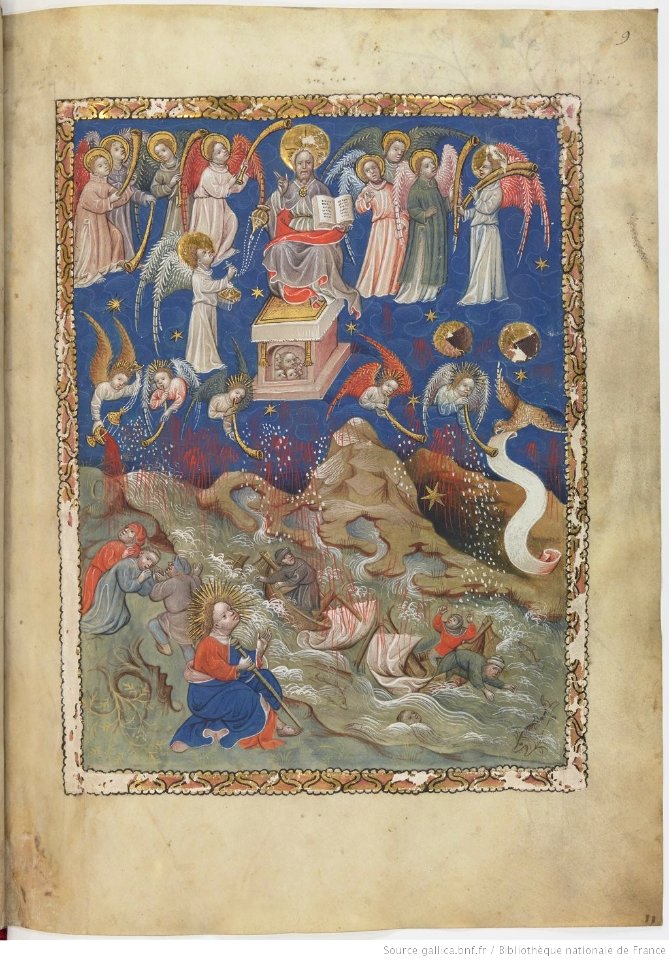 9
Source gallica.bnf.fr / Bibliothèque nationale de France